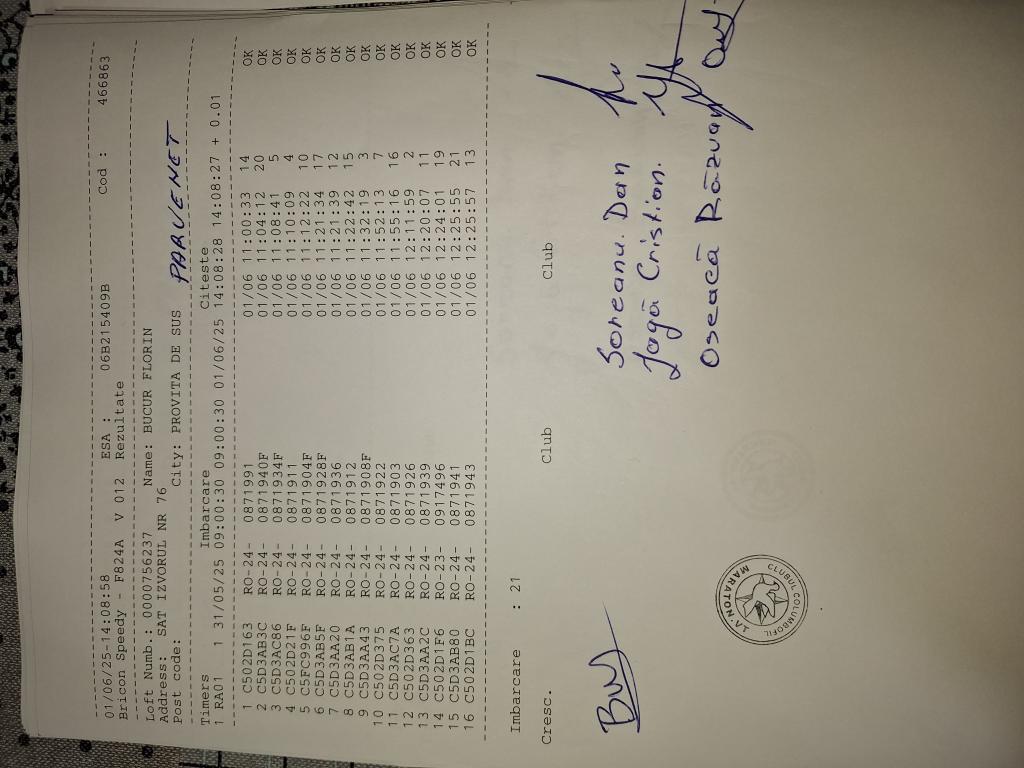 01/06/25-14:08:58 ESA : 06B215409B Cod : 466863
Bricon Speedy - F824A V 012 Rezultate
Loft Numb.: 0000756237 Name: BUCUR FLORIN
Address: SAT IZVORUL NR 76
Post code: City: PROVITA DE SUS PARVENET
Timers Imbarcare Citeste
1 RA01 1 31/05/25 09:00:30 09:00:30 01/06/25 14:08:28 14:08:27 + 0.01
1 C502D163 RO-24- 0871991 01/06 11:00:33 14 OK
2 C5D3AB3C RO-24- 0871940F 01/06 11:04:12 20 OK
3 C5D3AC86 RO-24- 0871934F 01/06 11:08:41 5 OK
4 C502D21F RO-24- 0871911 01/06 11:10:09 4 OK
5 C5FC996F RO-24- 0871904F 01/06 11:12:22 10 OK
6 C5D3AB5F RO-24- 0871928F 01/06 11:21:34 17 OK
7 C5D3AA20 RO-24- 0871936 01/06 11:21:39 12 OK
8 C5D3AB1A RO-24- 0871912 01/06 11:22:42 15 OK
9 C5D3AA43 RO-24- 0871908F 01/06 11:32:19 3 OK
10 C502D375 RO-24- 0871922 01/06 11:52:13 7 OK
11 C5D3AC7A RO-24- 0871903 01/06 11:55:16 16 OK
12 C502D363 RO-24- 0871926 01/06 12:11:59 2 OK
13 C5D3AA2C RO-24- 0871939 01/06 12:20:07 11 OK
14 C502D1F6 RO-23- 0917496 01/06 12:24:01 19 OK
15 C5D3AB80 RO-24- 0871941 01/06 12:25:55 21 OK
16 C502D1BC RO-24- 0871943 01/06 12:25:57 13 OK
Imbarcare : 21
Cresc. Club Club
Soreanu. Dan
Jagă Cristian.
Oseacă Răzvan
CLUBUL COLUMBOFIL
MARATON